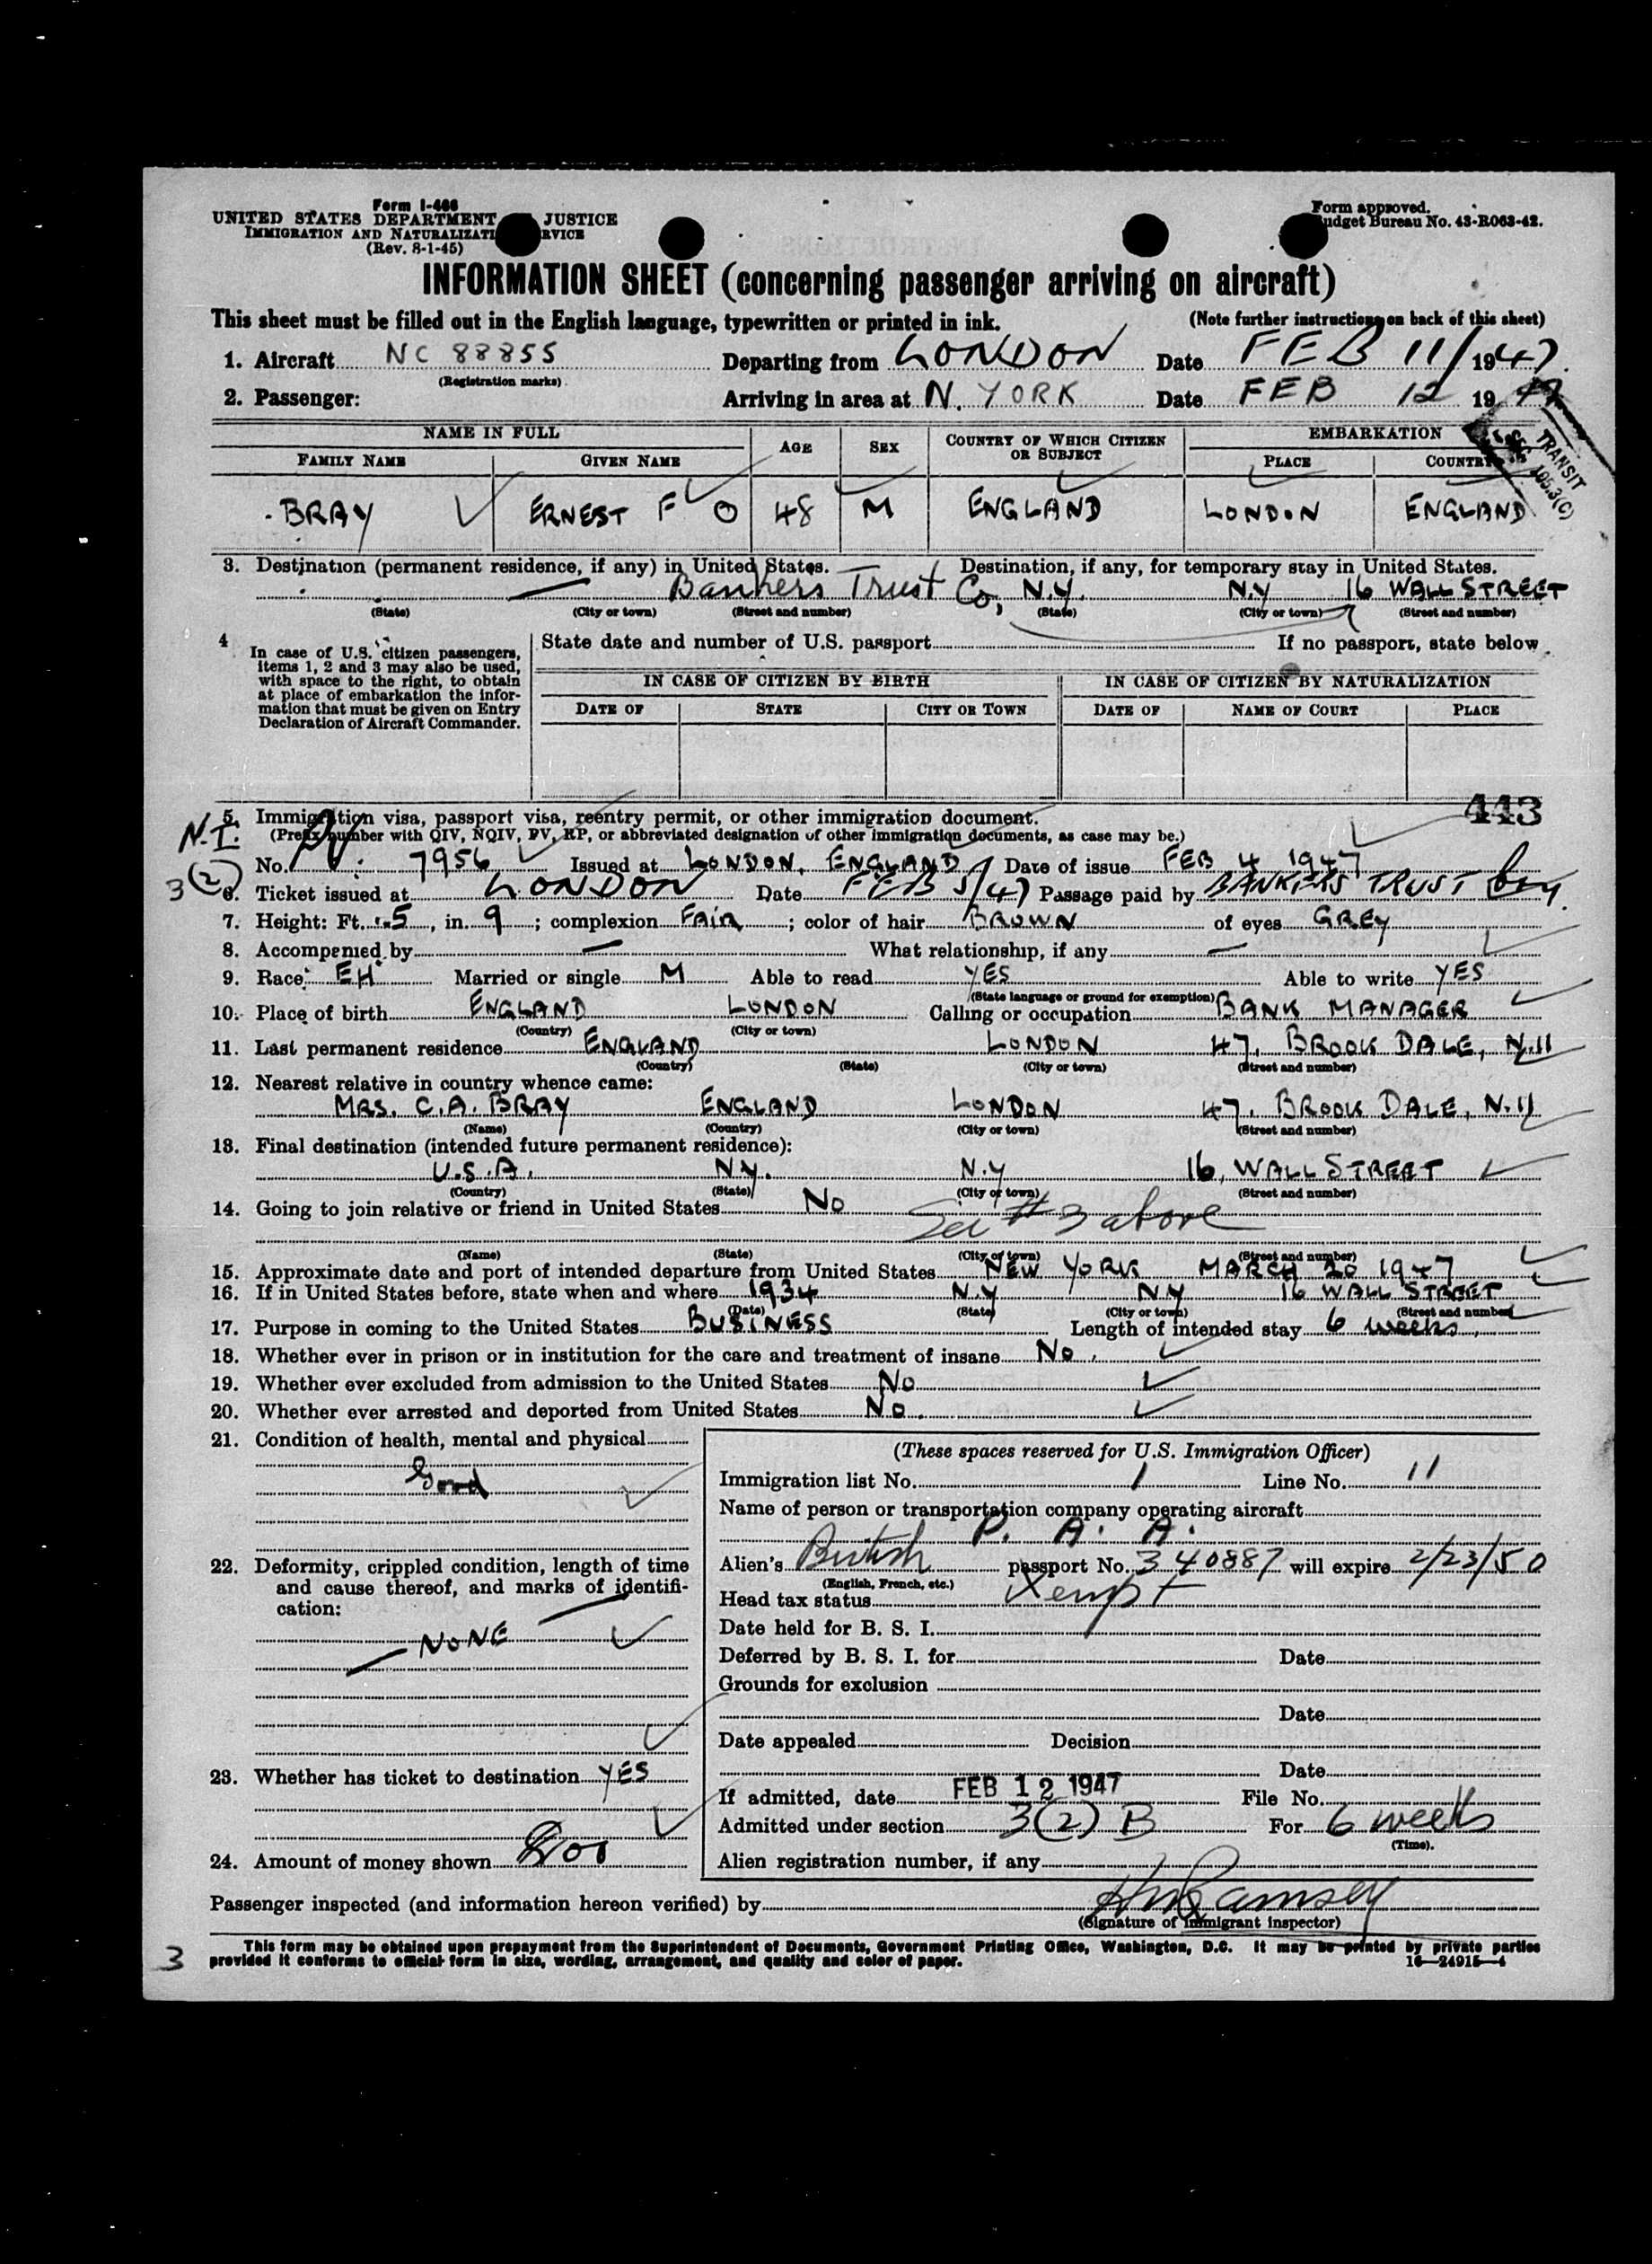 Form I-466
UNITED STATES DEPARTMENT JUSTICE
IMMIGRATION AND NATURALIZATI RVICE
(Rev. 8-1-45)
Form approved.
udget Bureau No. 43-R063-42.
INFORMATION SHEET (concerning passenger arriving on aircraft)
This sheet must be filled out in the English language, typewritten or printed in ink. (Note further instructions on back of this sheet)
1. Aircraft NC 88855 Departing from LONDON Date FEB 11/ 1947.
(Registration marks)
2. Passenger: Arriving in area at N. YORK Date FEB 12 1947
TRANSIT
SEC 105.3(C)
NAME IN FULL AGE SEX COUNTRY OF WHICH CITIZEN OR SUBJECT EMBARKATION
FAMILY NAME GIVEN NAME PLACE COUNTRY
BRAY ERNEST F O 48 M ENGLAND LONDON ENGLAND
3. Destination (permanent residence, if any) in United States. Destination, if any, for temporary stay in United States.
Bankers Trust Co, N.Y. N.Y 16 WALL STREET
(State) (City or town) (Street and number) (State) (City or town) (Street and number)
4 In case of U.S. citizen passengers, items 1, 2 and 3 may also be used, with space to the right, to obtain at place of embarkation the information that must be given on Entry Declaration of Aircraft Commander.
State date and number of U.S. passport If no passport, state below
IN CASE OF CITIZEN BY BIRTH IN CASE OF CITIZEN BY NATURALIZATION
DATE OF STATE CITY OR TOWN DATE OF NAME OF COURT PLACE
443
5. Immigration visa, passport visa, reentry permit, or other immigration document.
N.I. (Prefix number with QIV, NQIV, PV, RP, or abbreviated designation of other immigration documents, as case may be.)
No. PV 7956 Issued at LONDON, ENGLAND Date of issue FEB 4 1947
3(2) 6. Ticket issued at LONDON Date FEB 5/47 Passage paid by BANKERS TRUST Coy.
7. Height: Ft. 5, in. 9; complexion FAIR; color of hair BROWN of eyes GREY
8. Accompanied by — What relationship, if any —
9. Race EH Married or single M Able to read YES Able to write YES
(State language or ground for exemption)
10. Place of birth ENGLAND LONDON Calling or occupation BANK MANAGER
(Country) (City or town)
11. Last permanent residence ENGLAND LONDON 47, BROOK DALE, N.11
(Country) (State) (City or town) (Street and number)
12. Nearest relative in country whence came:
MRS. C.A. BRAY ENGLAND LONDON 47, BROOK DALE, N.11
(Name) (Country) (City or town) (Street and number)
13. Final destination (intended future permanent residence):
U.S.A. N.Y. N.Y 16, WALL STREET
(Country) (State) (City or town) (Street and number)
14. Going to join relative or friend in United States No See # 3 above
(Name) (State) (City or town) (Street and number)
15. Approximate date and port of intended departure from United States NEW YORK MARCH 20 1947
16. If in United States before, state when and where 1934 N.Y N.Y 16 WALL STREET
(Date) (State) (City or town) (Street and number)
17. Purpose in coming to the United States BUSINESS Length of intended stay 6 weeks.
18. Whether ever in prison or in institution for the care and treatment of insane No.
19. Whether ever excluded from admission to the United States No
20. Whether ever arrested and deported from United States No.
21. Condition of health, mental and physical
Good
22. Deformity, crippled condition, length of time and cause thereof, and marks of identification:
— NONE —
23. Whether has ticket to destination YES
24. Amount of money shown
(These spaces reserved for U.S. Immigration Officer)
Immigration list No. 1 Line No. 11
Name of person or transportation company operating aircraft
P. A. A.
Alien's British passport No. 340887 will expire 2/23/50
(English, French, etc.)
Head tax status Xempt
Date held for B. S. I.
Deferred by B. S. I. for Date
Grounds for exclusion
Date
Date appealed Decision
Date
If admitted, date FEB 12 1947 File No.
Admitted under section 3(2) B For 6 weeks
(Time).
Alien registration number, if any
Passenger inspected (and information hereon verified) by Ramsey
(Signature of immigrant inspector)
This form may be obtained upon prepayment from the Superintendent of Documents, Government Printing Office, Washington, D.C. It may be printed by private parties
3 provided it conforms to official form in size, wording, arrangement, and quality and color of paper. 16—24915—4